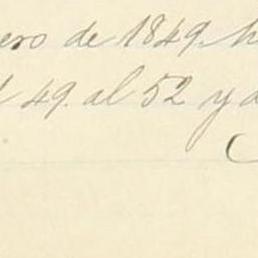 ero de 1849.
49. al 52 y